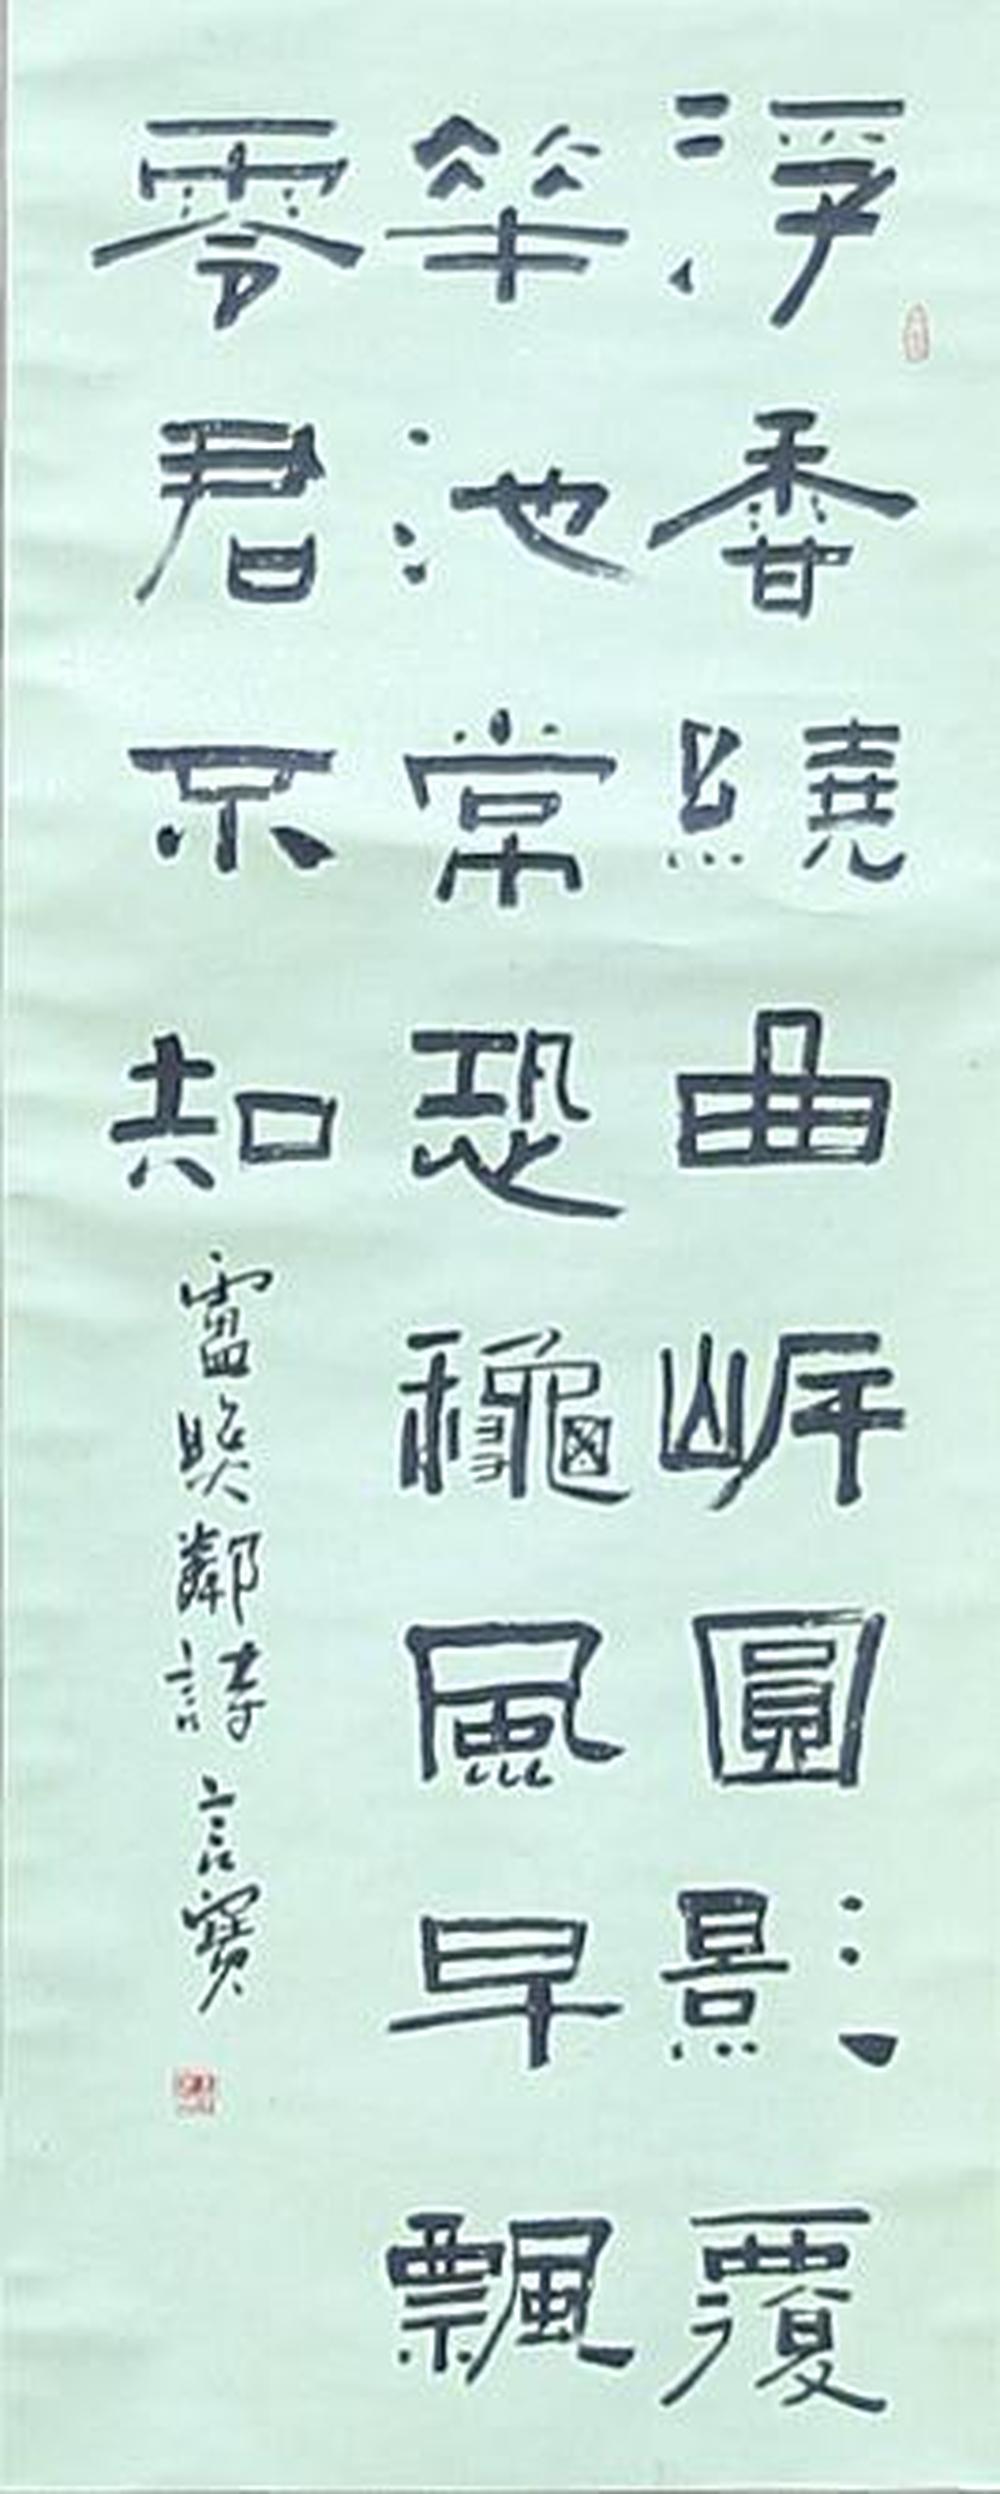 浮香繞曲岸圓影覆
華池常恐龝風早飄
零君不知
盧照鄰詩 言寶